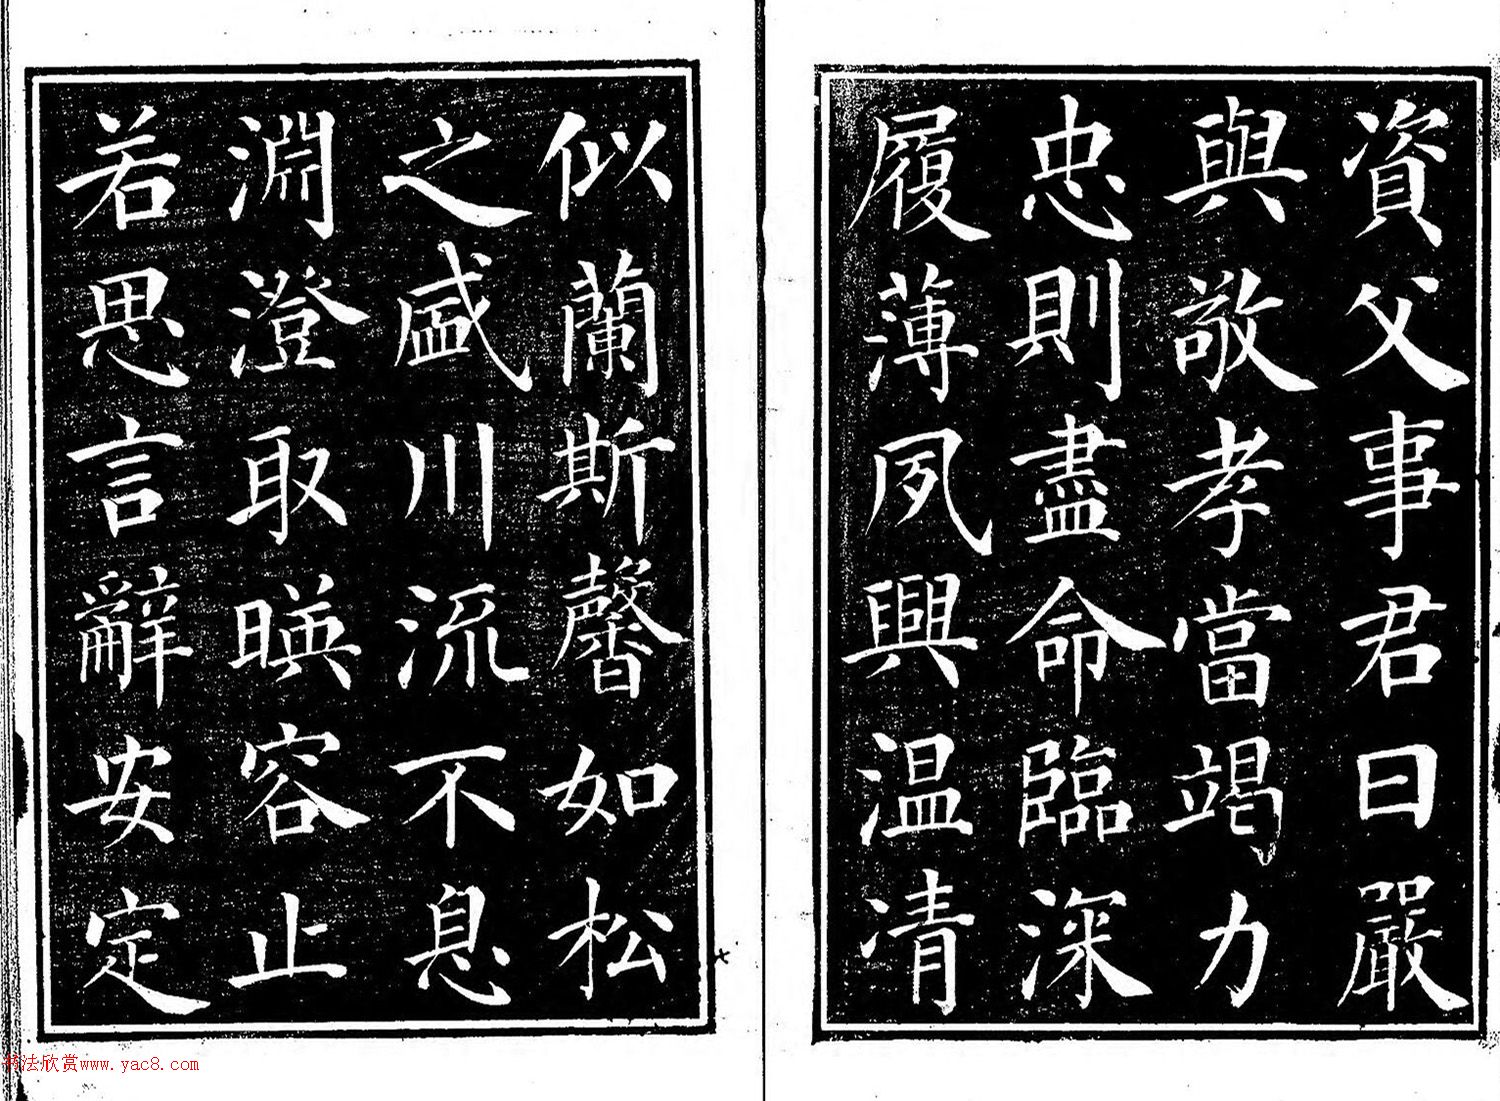 資父事君曰嚴
與敬孝當竭力
忠則盡命臨深
履薄夙興温凊
似蘭斯馨如松
之盛川流不息
淵澄取暎容止
若思言辭安定
书法欣赏www.yac8.com